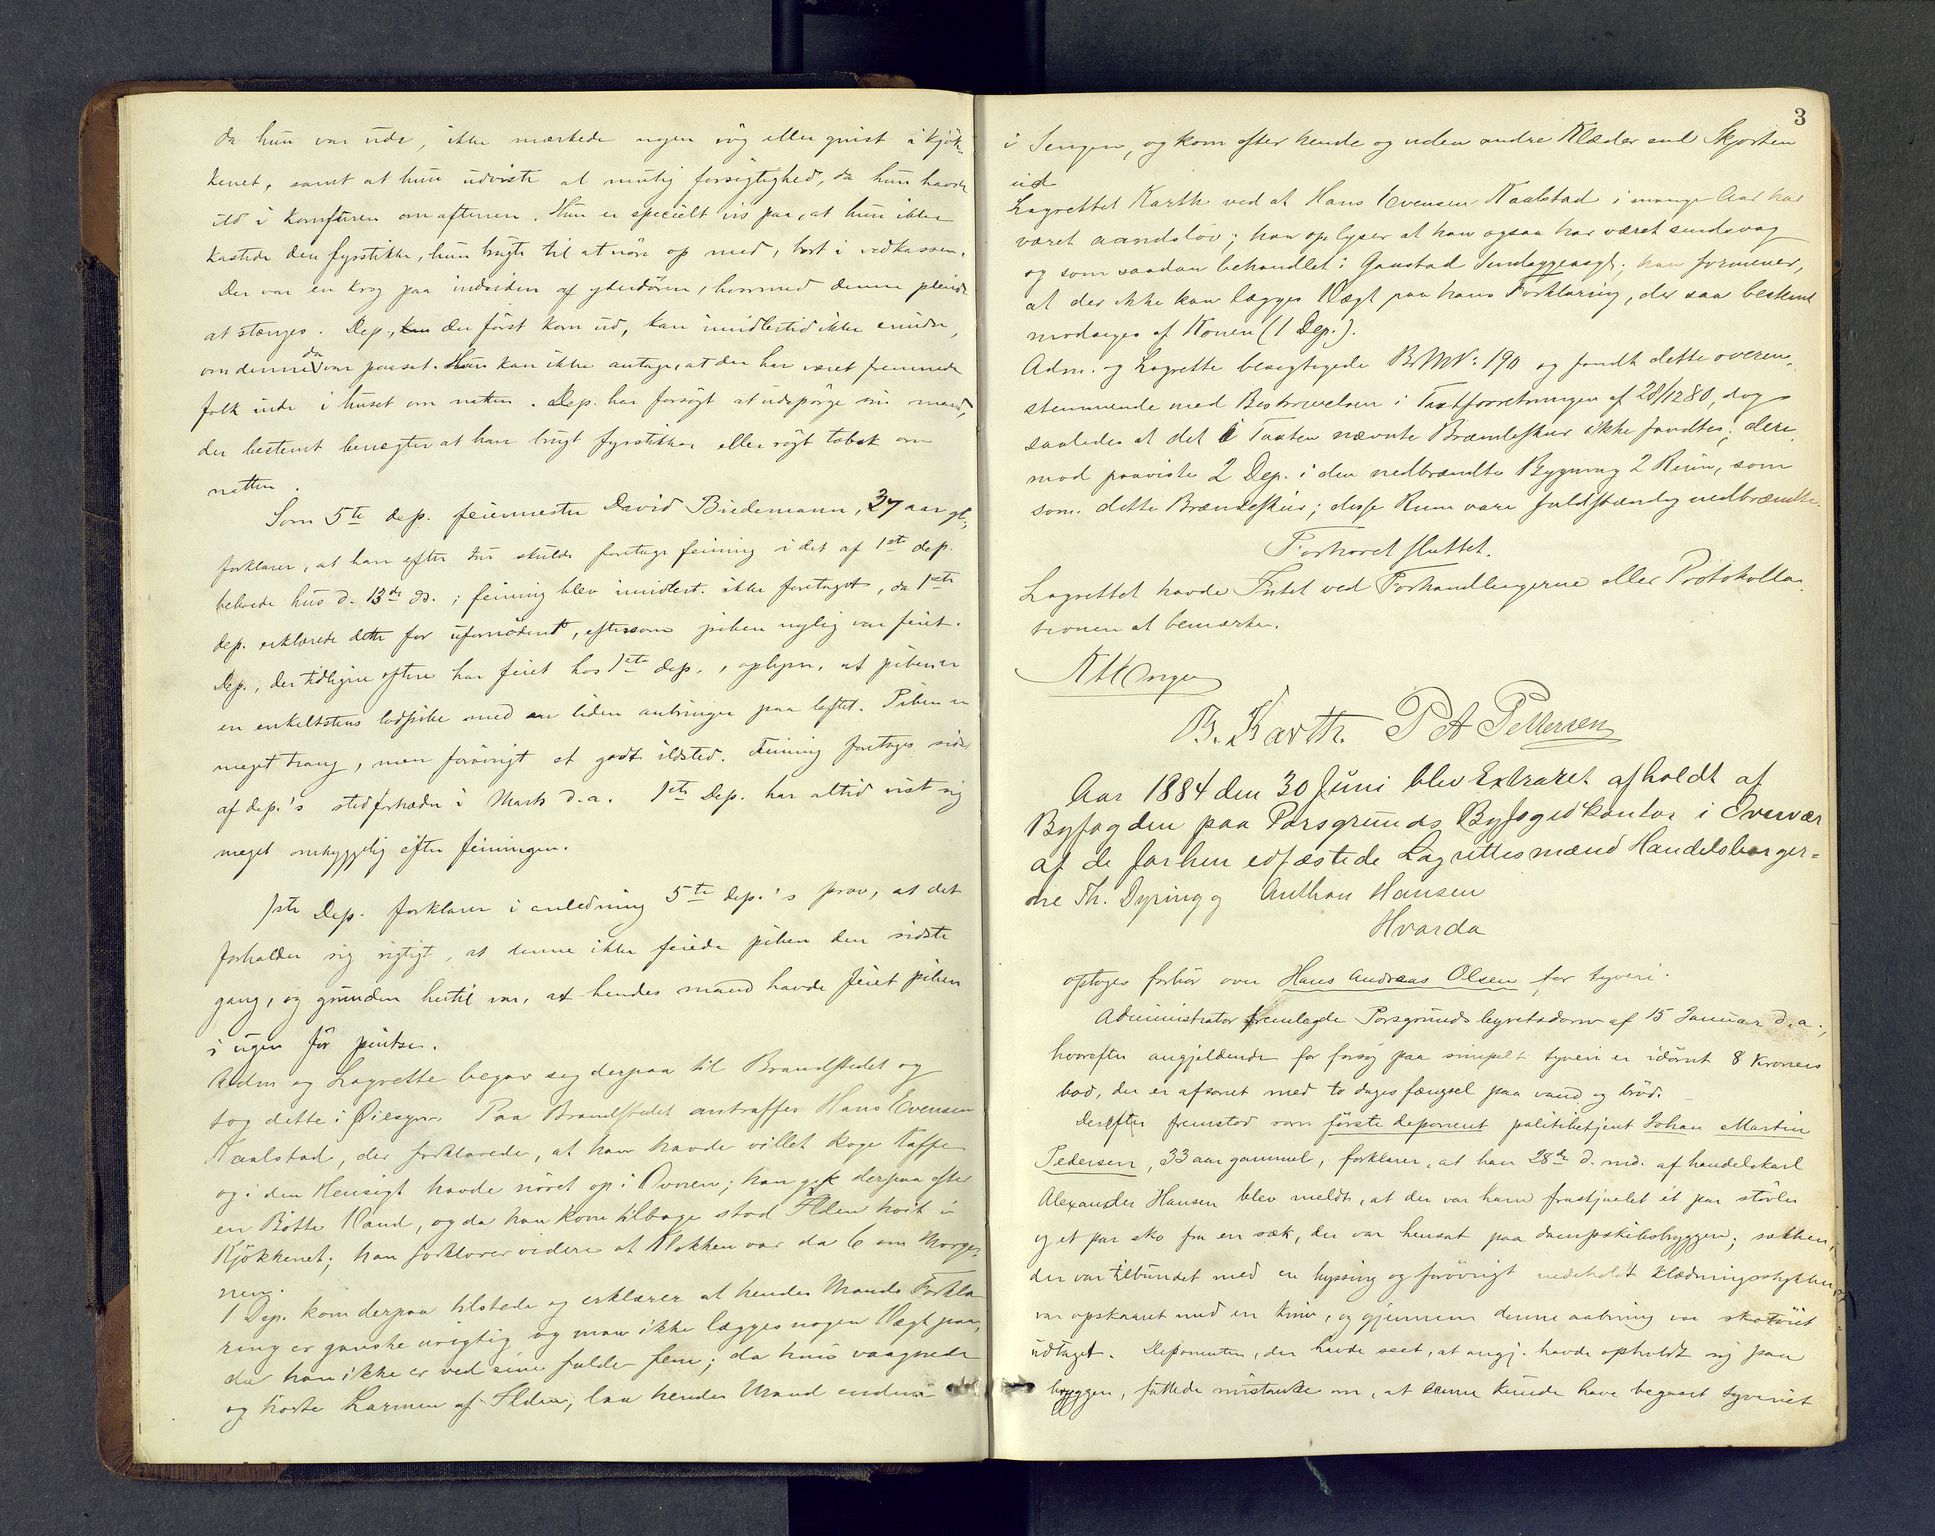 da hun var ude, ikke mærkede nogen røg eller gnist i kjøk-
kenet, samt at hun udviste al mulig forsigtighed, da hun havde
ild i komfuren om aftenen. Hun er specielt vis paa, at hun ikke
kastede den fyrstikke, hun brugte til at nøre op med, bort i vedkassen.
Der var en krog paa indsiden af yderdøren, hvormed denne pleiede
at stænges. Dep., der først kom ud, kan imidlertid ikke erindre,
om denne da var paasat. Hun kan ikke antage, at der har været fremmede
folk inde i huset om natten. Dep. har forsøgt at udspørge sin mand,
der bestemt benægter at have brugt fyrstikker eller røgt tobak om
natten.
Som 5te dep. feiermester David Biedemann, 37 aar gl.,
forklarer, at han efter tur skulde foretage feining i det af 1ste dep.
beboede hus d. 13de ds.; feining blev imidlert. ikke foretaget, da 1ste
dep. erklærede dette for ufornødent, eftersom piben nylig var feiet.
Dep., der tidligere oftere har feiet hos 1ste dep., oplyser, at piben er
en enkeltstens lodpibe med en liden anbringer paa loftet. Piben er
meget trang, men forøvrigt et godt ildsted. Feining foretoges sidst
af dep.'s stedfortræder i Marts d.a. 1ste Dep. har altid vist sig
meget omhyggelig efter feiningen.
1ste Dep. forklarer i anledning 5te dep.'s prov, at det
forholder sig rigtigt, at denne ikke feiede piben den sidste
gang, og grunden hertil var, at hendes mand havde feiet piben
i ugen før pintse.
Adm og Lagrette begav seg derpaa til Brandstedet og
tog dette i Øiesyn. Paa Brandstedet antraffes Hans Evensen
Kaalstad, der forklarede, at han havde villet koge Kaffe
og i den Hensigt havde nøret op i Ovnen; han gik derpaa efter
en Bøtte Vand, og da han kom tilbage stod Ilden høit i
Kjøkkenet; han forklarer videre at Klokken var da 6 om Morge-
nen.
1 Dep. kom derpaa tilstede og erklærer at hendes Mands Forkla-
ring er ganske urigtig og maa ikke lægges nogen Vægt paa,
da han ikke er ved sine fulde fem; da hun vaagnede
og hørte Larmen af Ilden, laa hendes Mand endnu
3
i Sengen, og kom efter hende og uden andre Klæder end Skjorten
ud
Lagrettet Karth ved at Hans Evensen Kaalstad i mange Aar har
været aandsløv; han oplyser at han ogsaa har været sindsvag
og som saadan behandlet i Gaustad Sindssygeasyl; han formener,
at der ikke kan lægges Vægt paa hans Forklaring, der saa bestemt
modsiges af Konen (1 Dep.).
Adm. og Lagrette besigtigede BMN: 190 og fandt dette overen-
stemmende med Beskrivelsen i Taxtforretningen af 28/12 80, dog
saaledes at det i Taxten nævnte Brændeskur ikke fandtes; deri-
mod paaviste 2 Dep. i den nedbrændte Bygning 2 Rum, som
som dette Brændeskur; disse Rum vare fuldstændig nedbrændte.
Forhøret sluttet.
Lagrettet havde Intet ved Forhandlingerne eller Protokolla-
tionen at bemærke.
B. Karth. P A Pettersen
Aar 1884 den 30 Juni blev Extraret afholdt af
Byfogden paa Porsgrunds Byfogedkontor i Overvær
af de forhen edfæstede Lagrettesmænd Handelsborger-
ne Th. Dyring og Anthon Hansen
Hvorda
optoges forhør over Hans Andreas Olsen for tyveri.
Administrator fremlagde Porsgrunds byretsdom af 15 Januar d.a.,
hvorefter angjeldende for forsøg paa simpelt tyveri er idømt 8 kroners
bod, der er afsonet med to dages fængsel paa vand og brød.
Derefter fremstod som første deponent politibetjent Johan Martin
Pedersen, 33 aar gammel, forklarer, at han 28de d. md. af handelskarl
Alexander Hansen blev meldt, at der var ham frastjaalet et par støvler
og et par sko fra en sæk, der var hensat paa dampskibsbryggen; sækken,
der var tilbundet med en hyssing og forøvrigt indeholdt klædningsstykker,
var opskaaret med en kniv, og gjennem denne aabning var skotøiet
udtaget. Deponenten, der havde seet, at angj. havde opholdt sig paa
bryggen, fattede mistanke om, at denne kunde have begaaet tyveriet